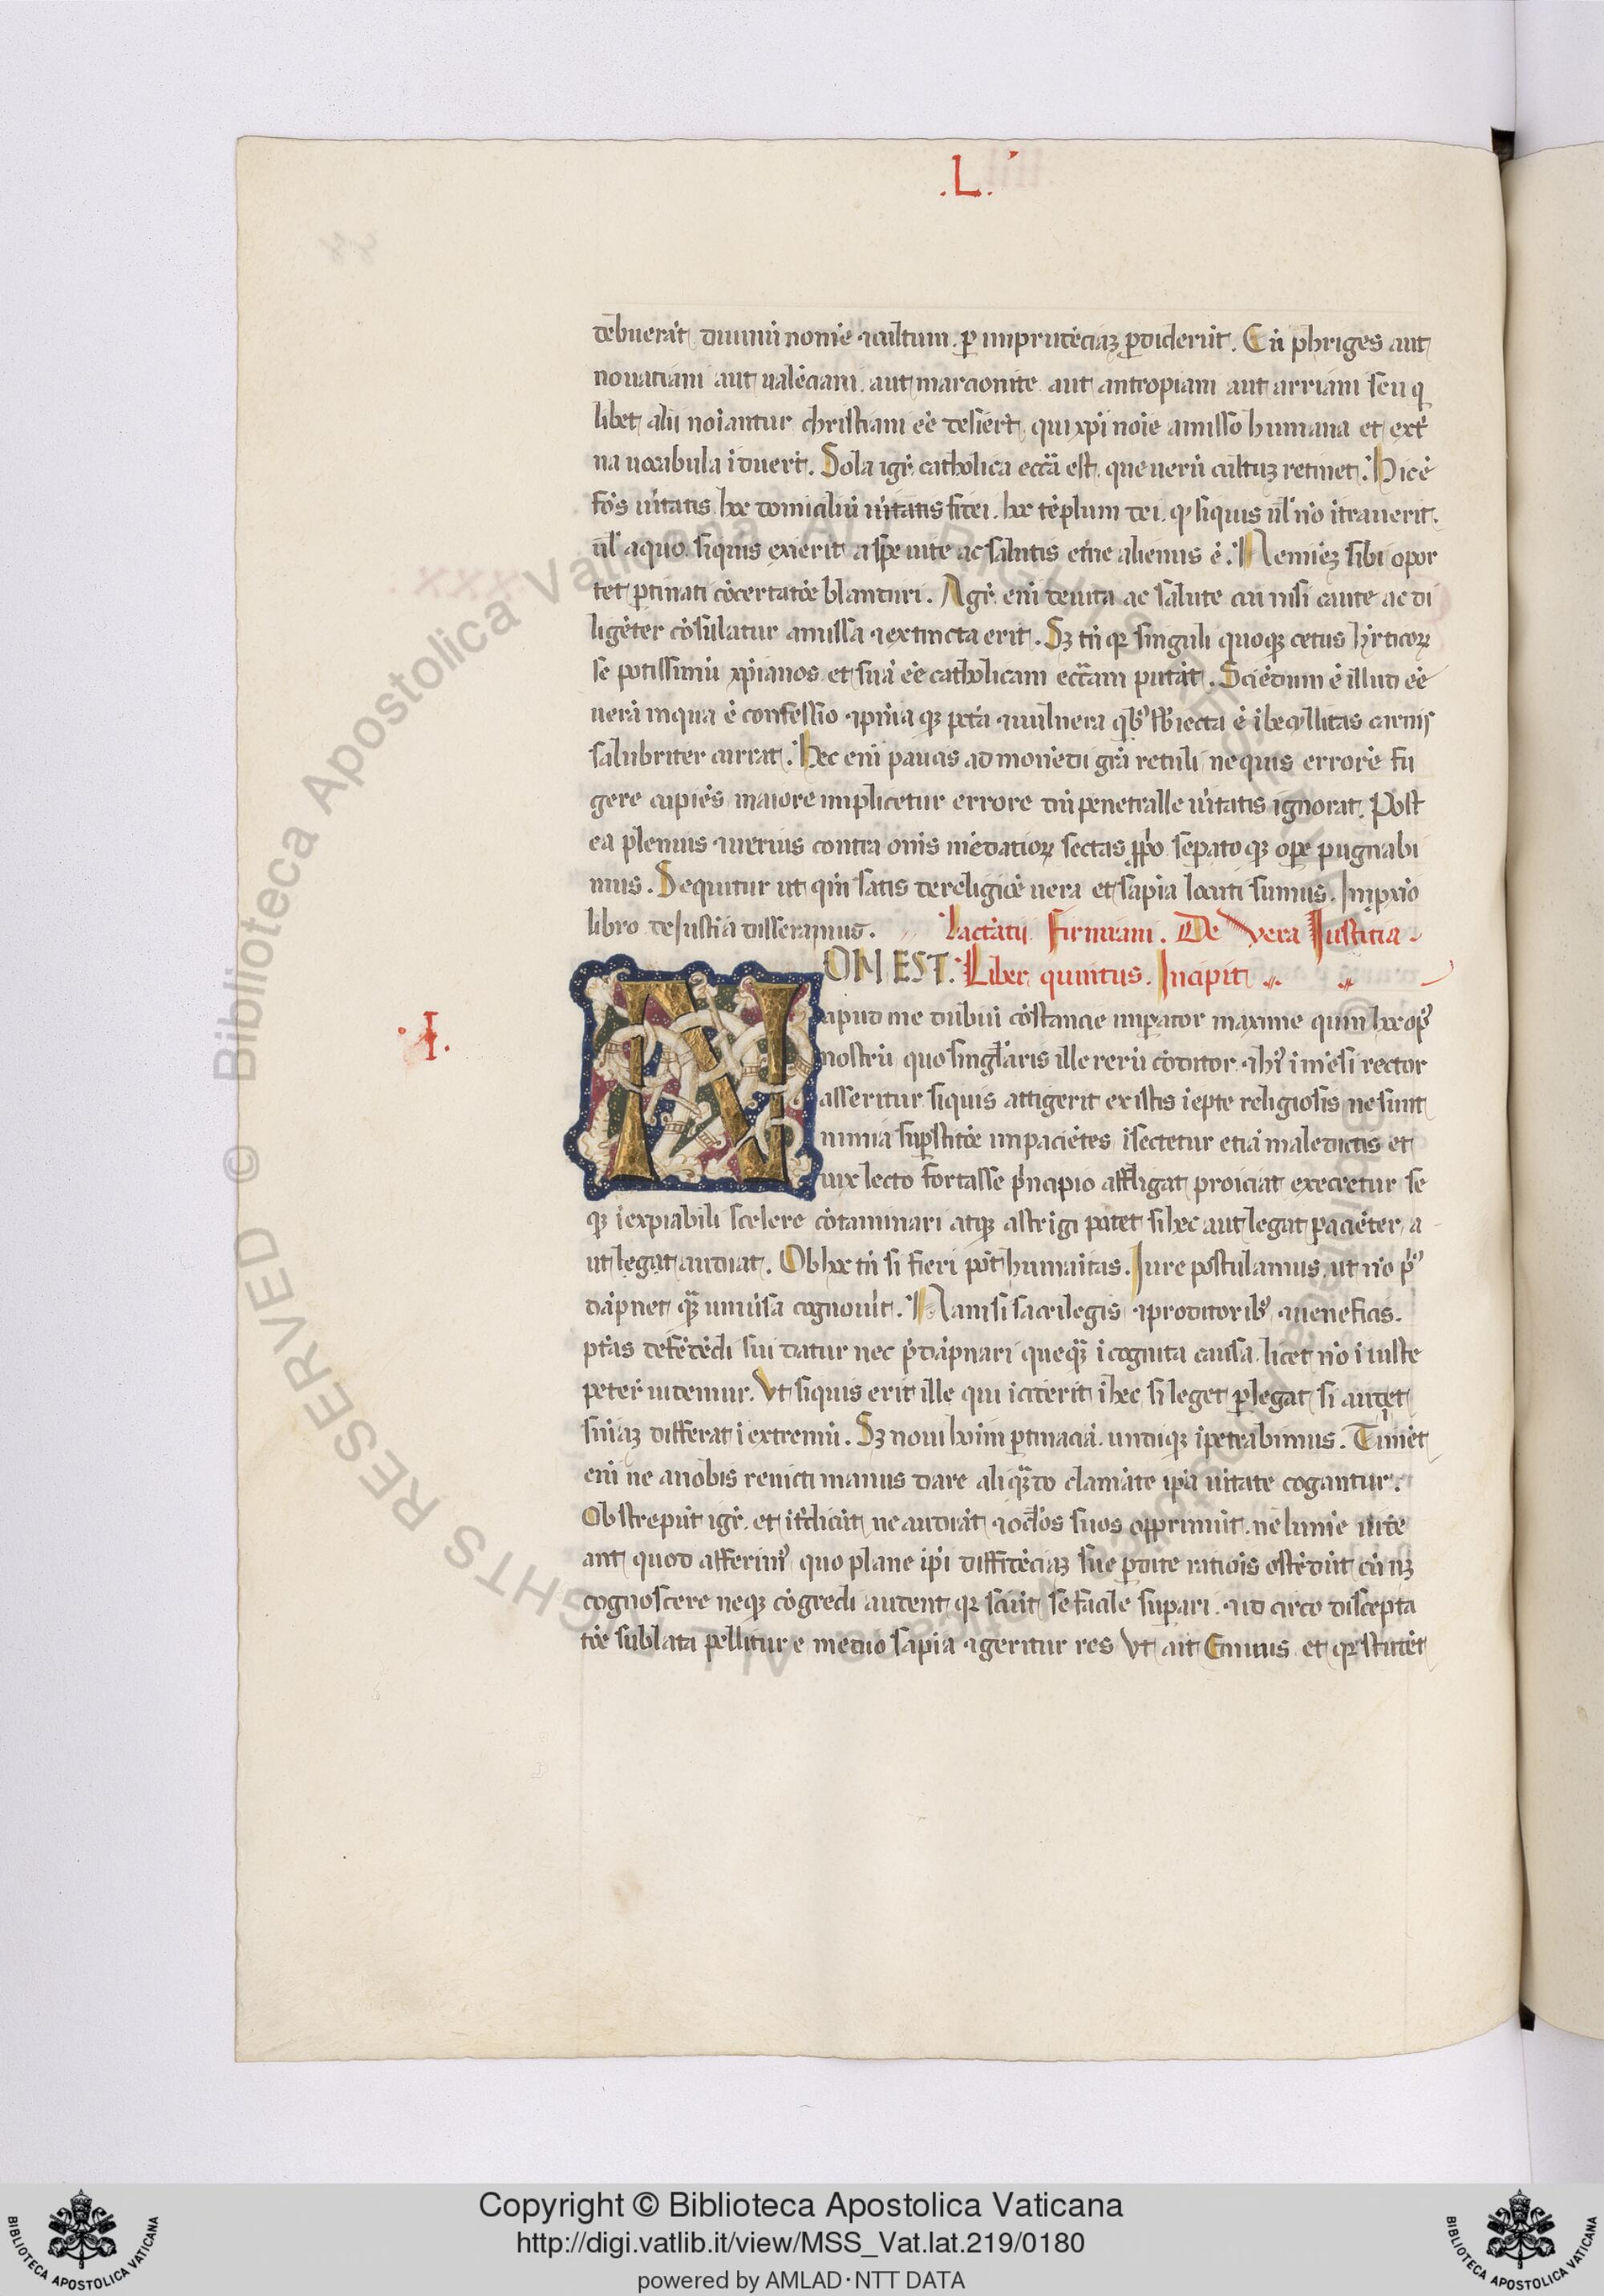 .L.
debuerāt diuinū nomē ⁊ cultum. ꝑ imprudēciaꝫ ꝑdiderūt. Cū phriges aut
nouatiani aut ualēciani. aut marcionite. aut antropiani aut arriani seu q
libet alii noīantur christiani eē desierūt, qui xp̄i noīe amisso humana et ext̄
na uocabula īduerūt. Sola igr̄ catholica ecc̄a est. que uerū cultuꝫ retinet. Hic ē
fōs ūitatis. hoc domiciliū ūitatis fidei. hoc tēplum dei. q̄ siquis ul̄ nō ītrauerit.
ul̄ aquo siquis exierit a spe uite ac salutis et̄ne alienus ē. Neminēꝫ sibi opor
tet ꝑtinati cōcertatōe blandiri. Agr̄ enī de uita ac salute cui nisi caute ac di
ligēter cōsulatur amissa ⁊ extincta erit. Sꝫ tn̄ qꝛ singuli quoqꝫ cetus h̄eticoꝝ
se potissimū xp̄ianos. et suā eē catholicam ecc̄am putāt. Sciēdum ē illud eē
uerā inqua ē confessio ⁊ pn̄ia que pctā ⁊ uulnera qb᷒ sb̄iecta ē ībecyllitas carnis
salubriter curat. Hec enī paucis admonēdi grā retuli ne quis errorē fu
gere cupiēs maiore implicetur errore dū penetralle ūitatis ignorat. Post
ea plenius ⁊ uerius contra oīns mēdatioꝝ sectas ꝓprio sepatoqꝫ oꝑe pugnabi
mus. Sequitur ut qm̄ satis de religiōe uera et sapīa locuti sumus. In pxīo
libro de Justītia disseramus.
Lactātii Firmiani. De Vera Justitia.
NON EST. Liber quintus. Incipit
apud me dubiū cōstantie imꝑator maxime quin hoc op᷒
nostrū quo singl̄aris ille rerū cōditor ⁊ hui᷒ īmēsi rector
asseritur siquis attigerit ex istis īepte religiosis ne sunt
nimia suꝑstitōe impaciētes īsectetur etiā maledictis et
uix lecto fortasse pⁱncipio affligat proiciat execretur se
qꝫ īexpiabili scelere cōtaminari atqꝫ astrigi putet si hec aut legat paciēter a
ut legat audiat. Ob hoc tn̄ si fieri pōt humaītas. Jure postulamus ut nō p᷒
dāpnet quā uniūsa cognouīt. Nam si sacrilegis ⁊ proditorib᷒ ⁊ ueneficis.
ptās defēdēdi sui datur nec p̄dāpnari quequā īcognita causa licet nō īiuste
petere uidemur. Vt siquis erit ille qui īciderit ī hec si leget ꝑlegat si audiet
sn̄iaꝫ differat ī extremū. Sꝫ noui hoīm ꝑtinaciā. undiqꝫ īpetrabimus. Timēt
enī ne a nobis reuicti manus dare aliquādo clamāte ipā ūitate cogantur.
Obstrepūt igr̄. et īt̄cidūt ne audiāt ⁊ ocl̄os suos opprimūt. ne lumē uide
ant quod afferim᷒ quo plane ip̄i diffidēciaꝫ sue ꝑdite ratiōis ostēdūt cū nꝫ
cognoscere neqꝫ cōgredi audent qꝛ sciūt se facile suꝑari. ⁊ id circo discepta
tōe sublata pellitur e medio sapīa ⁊ geritur res Vt ait Ennius et qꝛ studēt
.I.
Copyright © Biblioteca Apostolica Vaticana
http://digi.vatlib.it/view/MSS_Vat.lat.219/0180
powered by AMLAD·NTT DATA
BIBLIOTECA APOSTOLICA VATICANA
BIBLIOTECA APOSTOLICA VATICANA